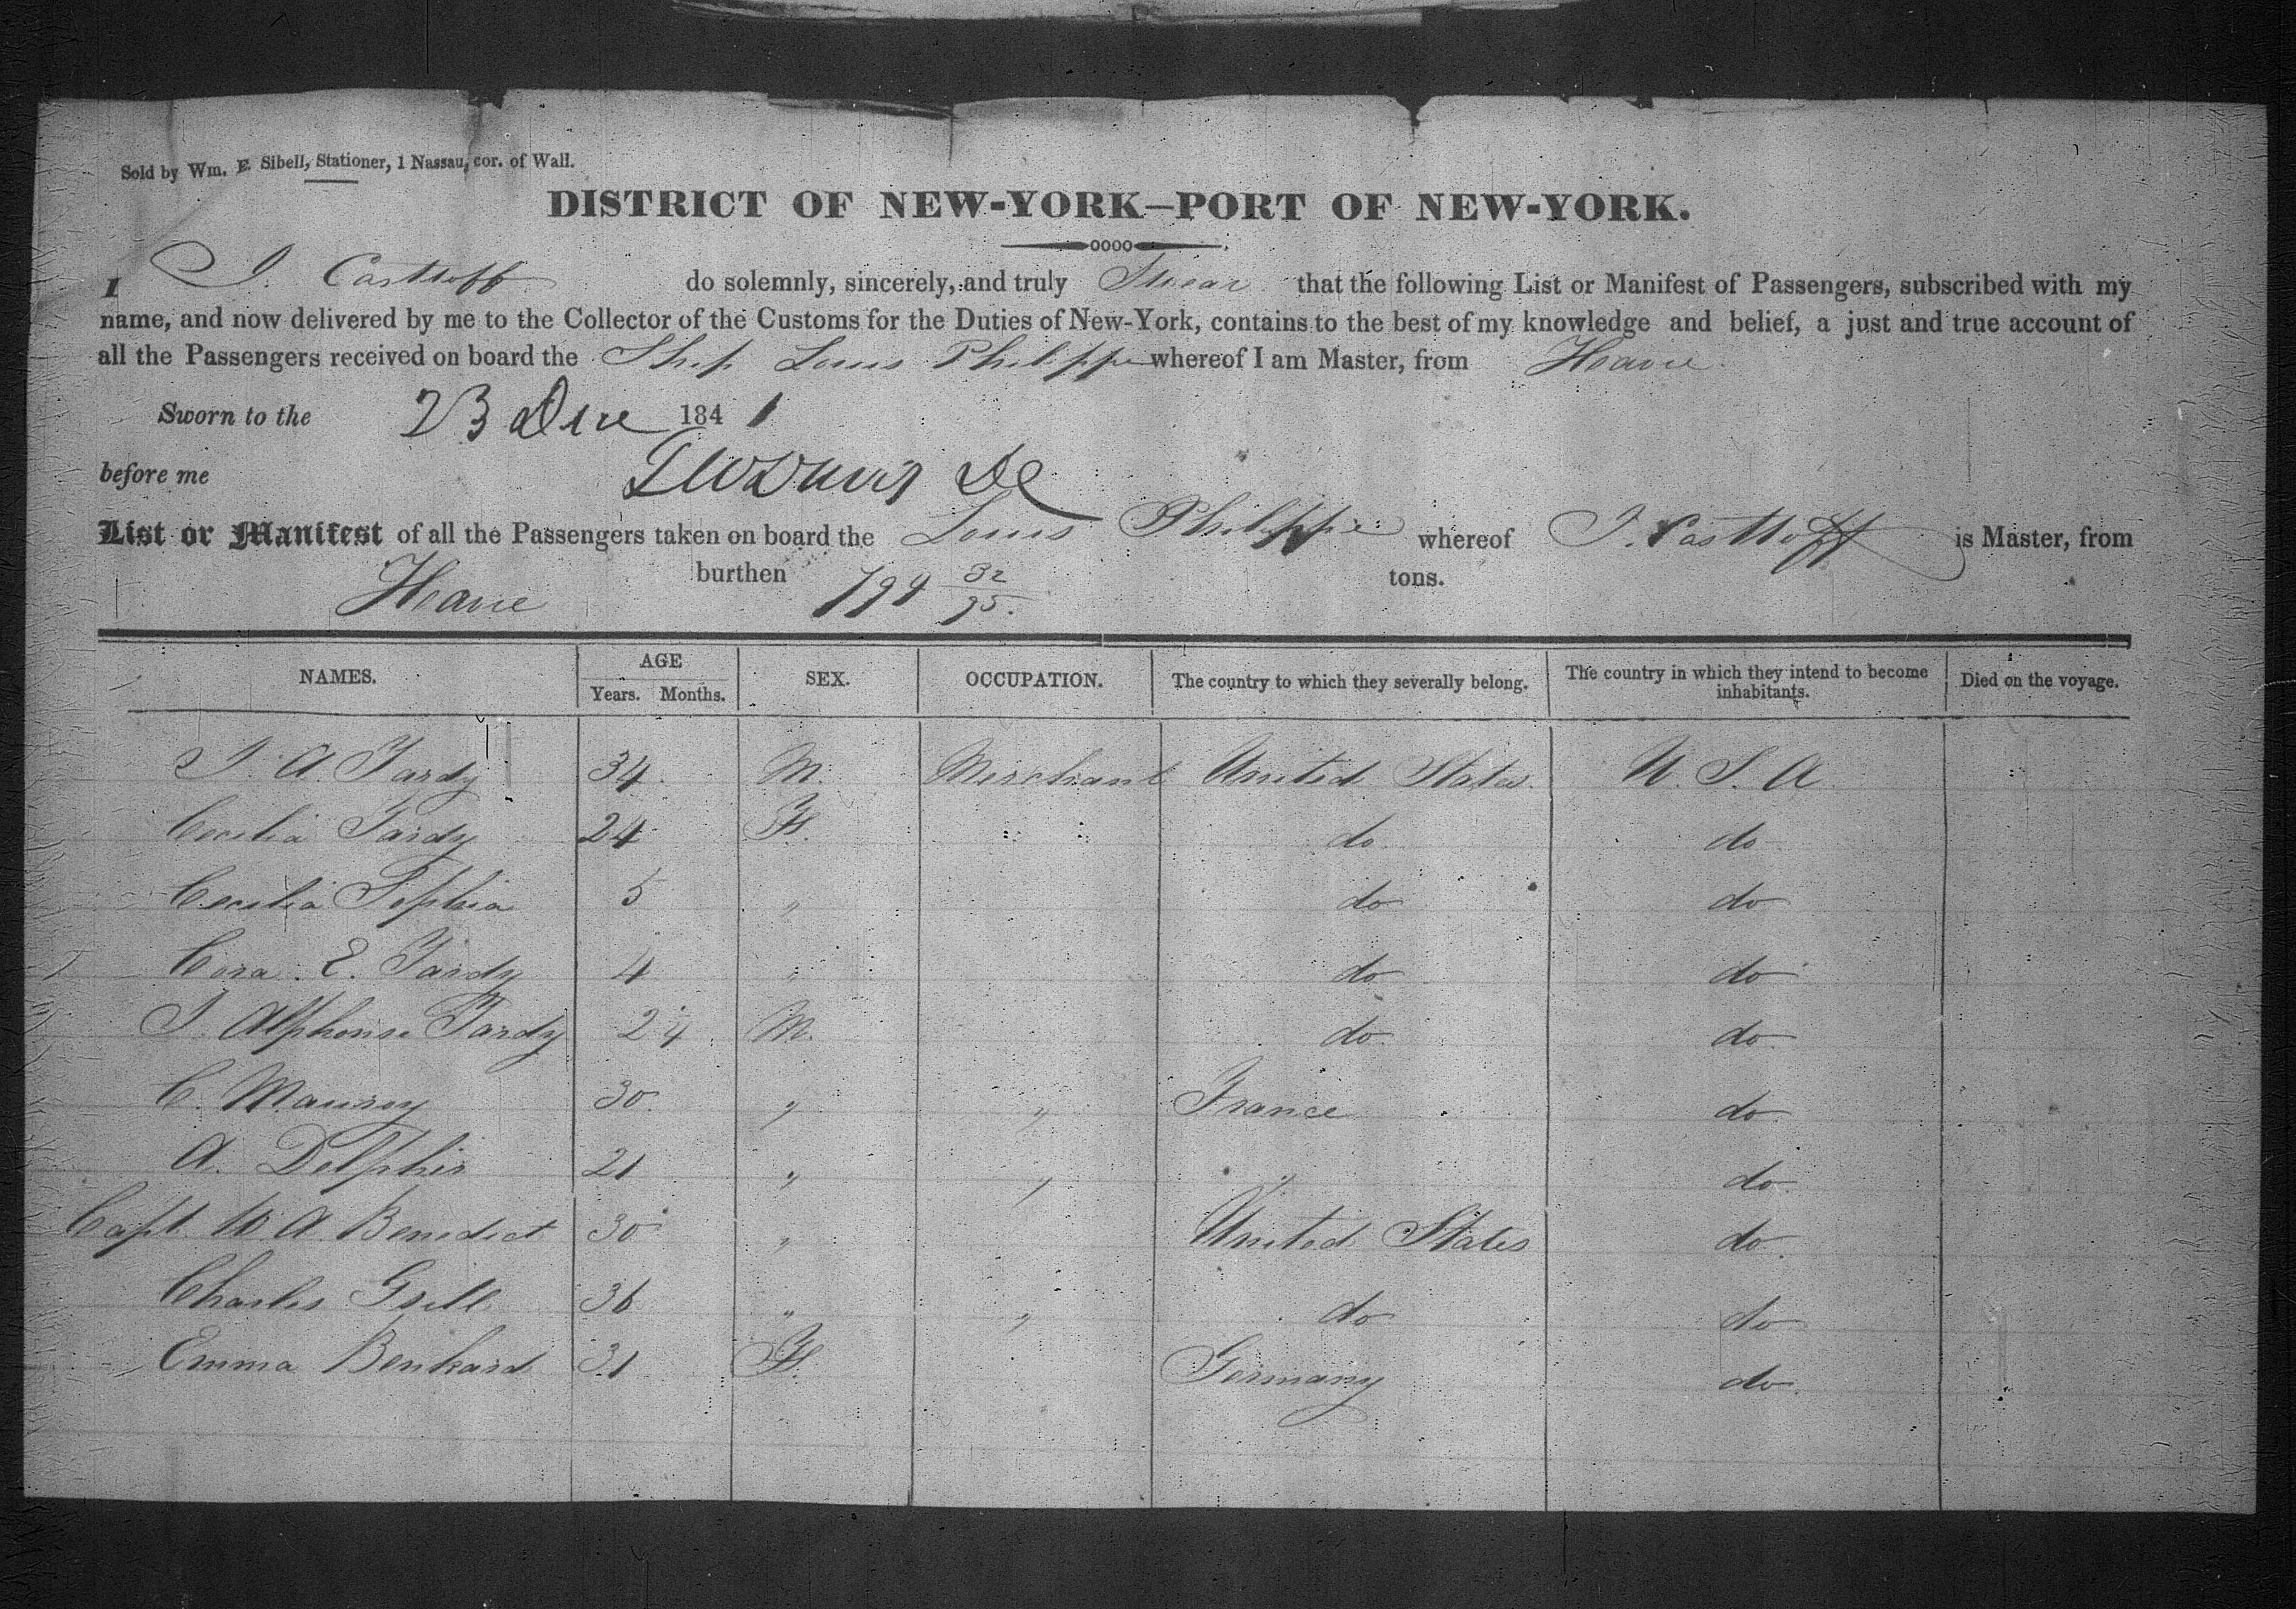 Sold by Wm. E. Sibell, Stationer, 1 Nassau, cor. of Wall.
DISTRICT OF NEW-YORK—PORT OF NEW-YORK.
I J. Casttoff do solemnly, sincerely, and truly Swear that the following List or Manifest of Passengers, subscribed with my
name, and now delivered by me to the Collector of the Customs for the Duties of New-York, contains to the best of my knowledge and belief, a just and true account of
all the Passengers received on board the Ship Louis Philippe whereof I am Master, from Havre
Sworn to the 23 Dec 1841
before me
List or Manifest of all the Passengers taken on board the Louis Philippe whereof J. Casttoff is Master, from
Havre burthen 794 32/95 tons.
NAMES. AGE Years. Months. SEX. OCCUPATION. The country to which they severally belong. The country in which they intend to become inhabitants. Died on the voyage.
J. A. Tardy 34 M. Merchant United States U. S. A
Cecilia Tardy 24 F. do do
Cecilia Sophia 5 " do do
Cora E. Tardy 4 " do do
J. Alphonse Tardy 2 4 M. do do
C. Maurey 30 " " France do
A. Delphin 21 " " " do
Capt. W A Benedict 30 " United States do
Charles Gsell 36 " " do do
Emma Benkard 31 F. Germany do